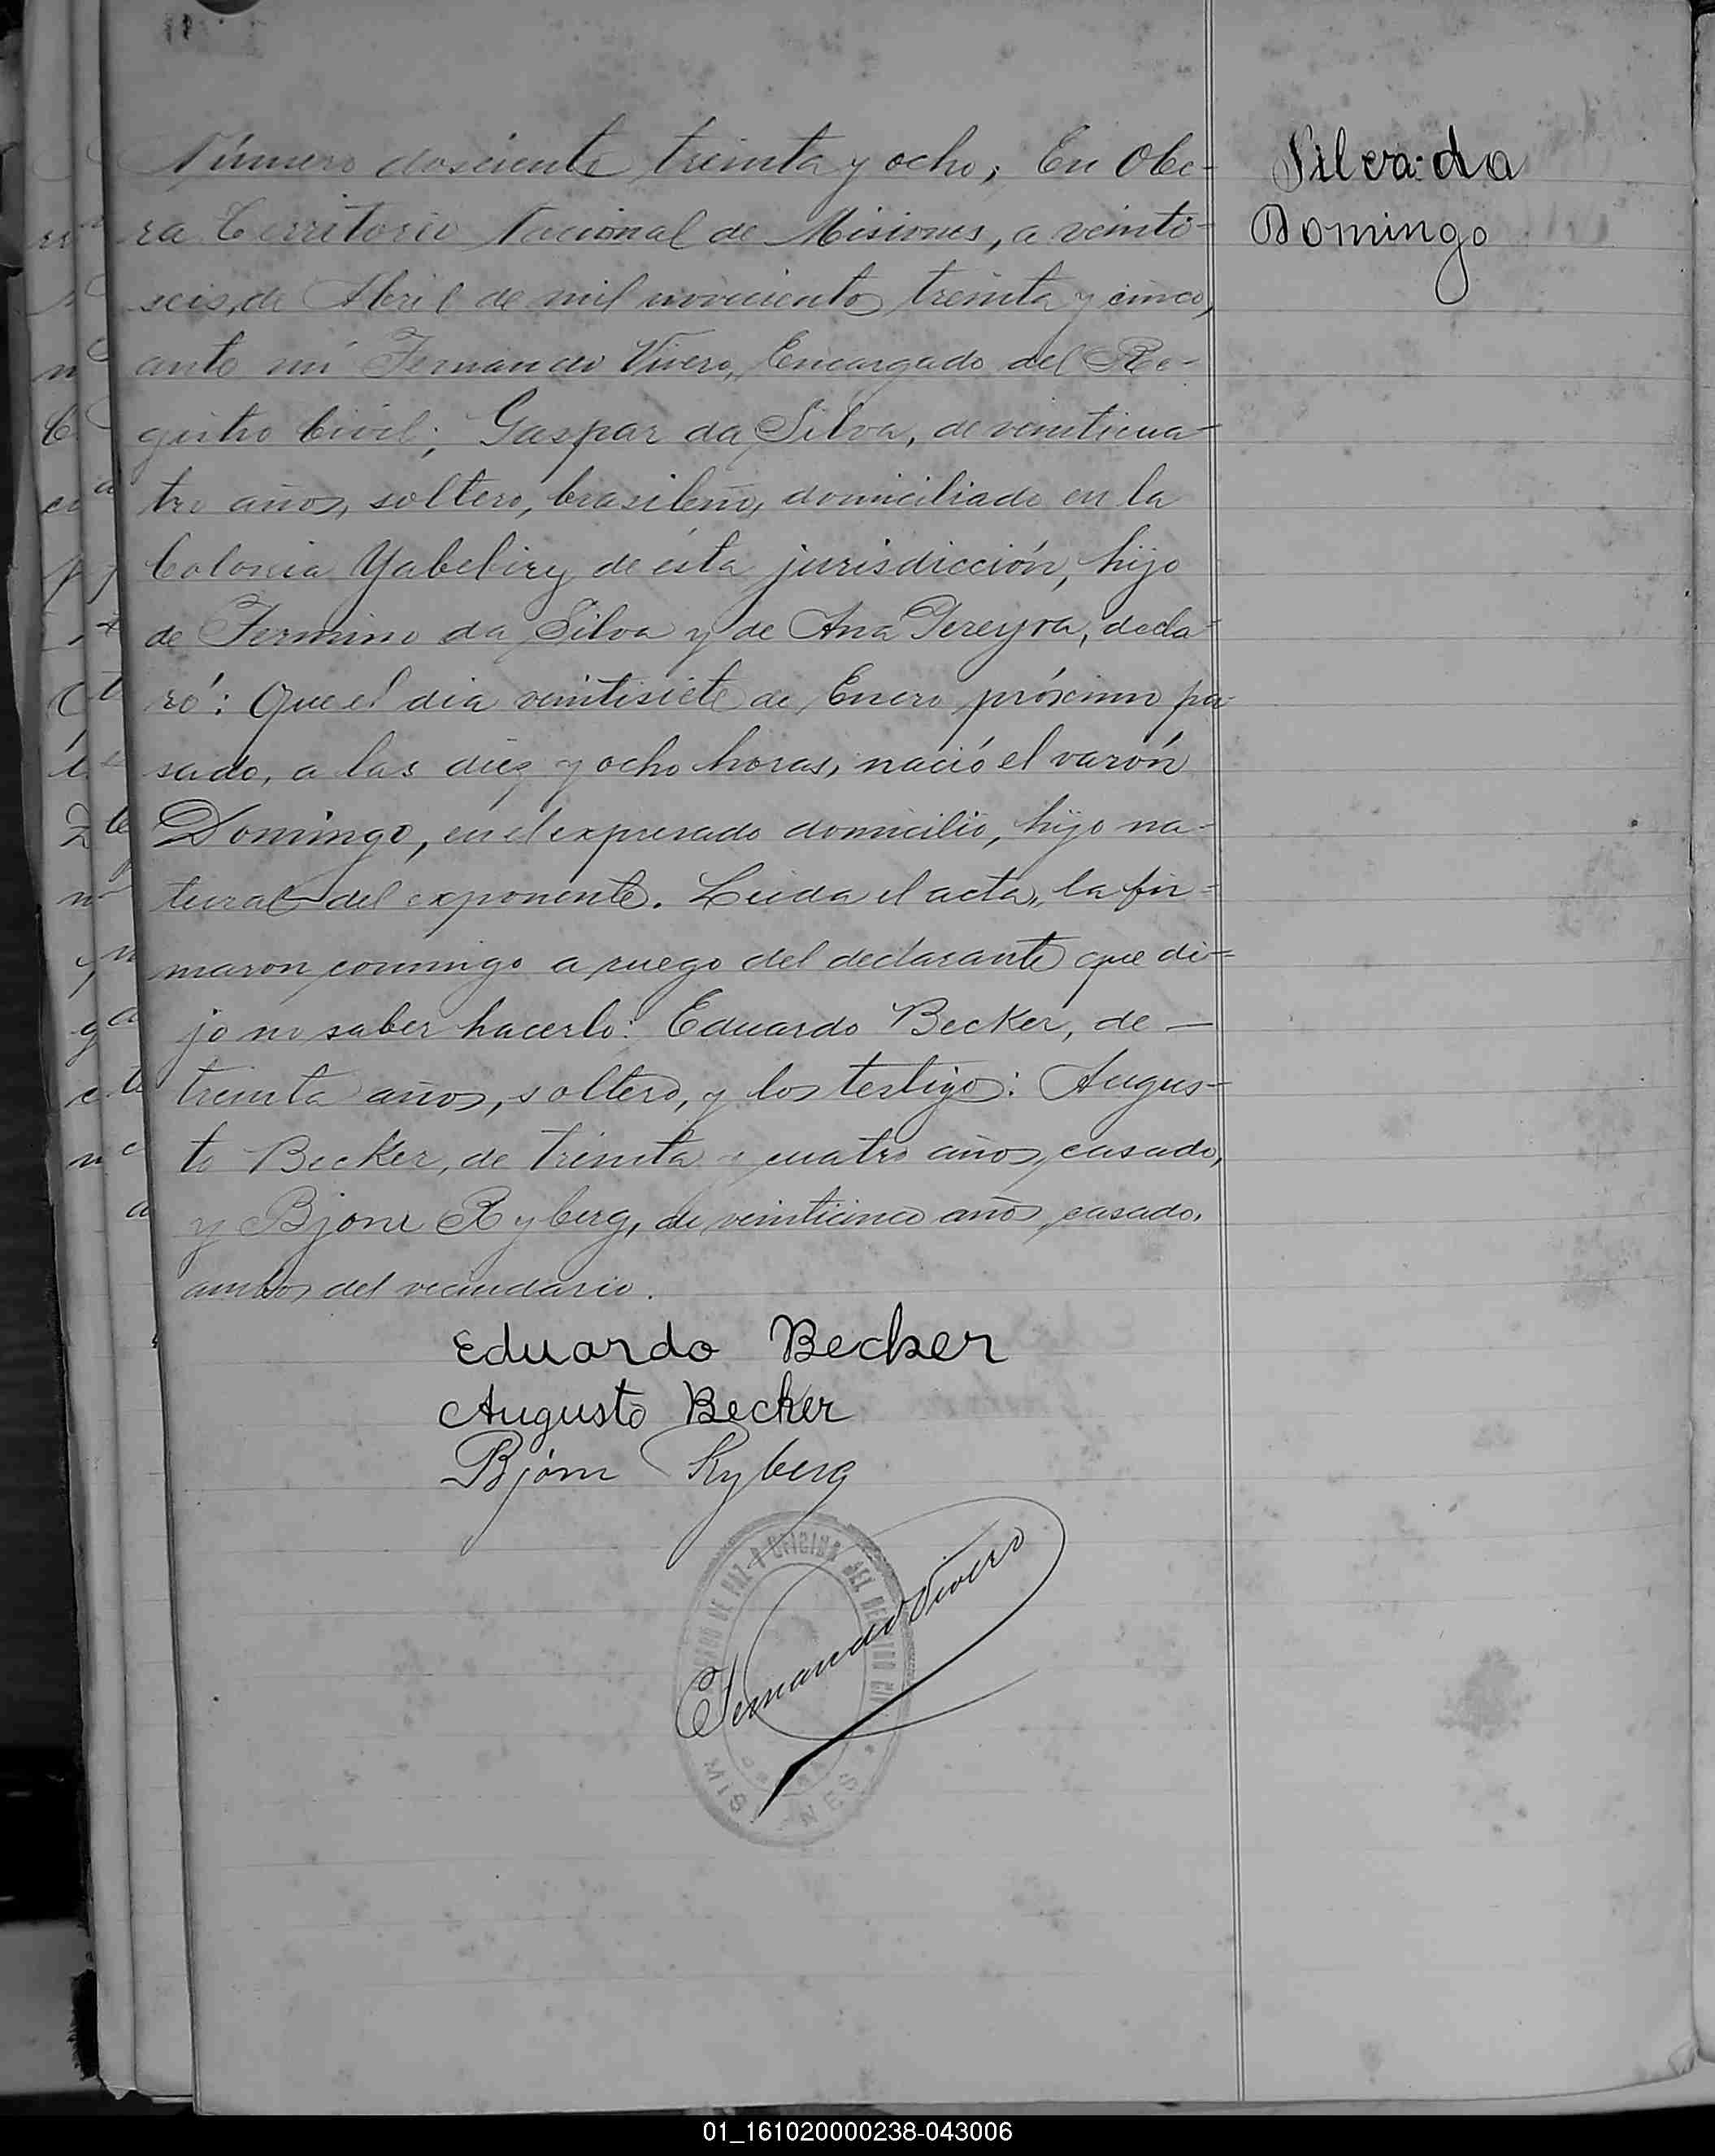 Número dosciento treinta y ocho; En Obe-
ra Territorio Nacional de Misiones, a veinti-
seis, de Abril de mil novecientos treinta y cinco,
ante mí Fernando Vivero, Encargado del Re-
gistro Civil; Gaspar da Silva, de veinticua-
tro años, soltero, brasileño, domiciliado en la
Colonia Yabebiry de ésta jurisdicción, hijo
de Fermino da Silva y de Ana Pereyra, decla-
ró: Que el dia veintisiete de Enero próximo pa-
sado, a las diez y ocho horas, nació el varón
Domingo, en el expresado domicilio, hijo na-
tural del exponente. Leida el acta, la fir-
maron conmigo a ruego del declarante que di-
jo no saber hacerlo: Eduardo Becker, de —
treinta años, soltero, y los testigos: Augus-
to Becker, de treinta y cuatro años, casado,
y Bjorn Ryberg, de veinticinco años, casado,
ambos del vecindario.
Silva da
Domingo
Eduardo Becker
Augusto Becker
Bjorn Ryberg
Fernando Vivero
DE PAZ Y OFICINA DEL REGISTRO
01_161020000238-043006